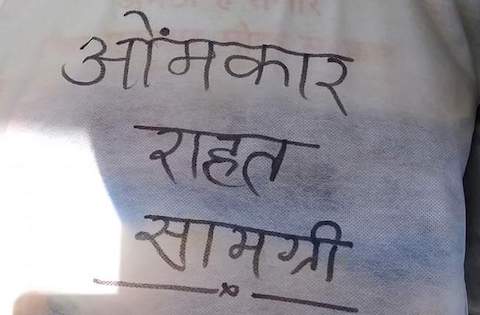 ओंमकार
राहत
सामग्री